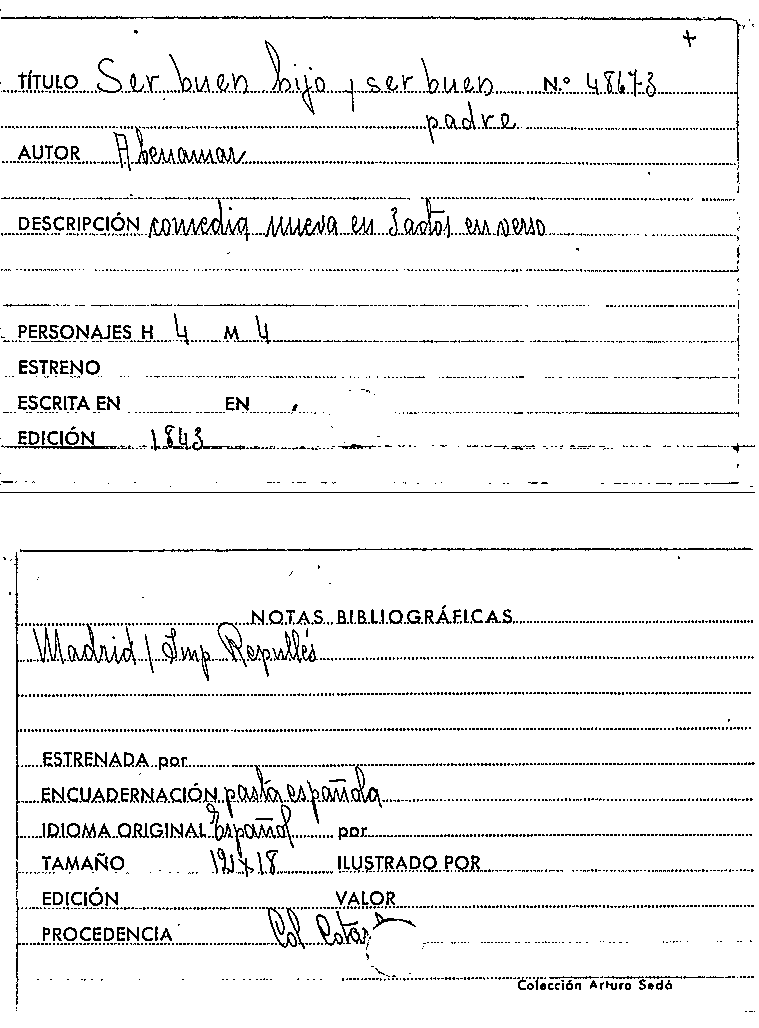 +
TÍTULO Ser buen hijo y ser buen N.º 48673
padre
AUTOR Abenamar
DESCRIPCIÓN comedia nueva en 3 actos en verso
PERSONAJES H 4 M 4
ESTRENO
ESCRITA EN EN
EDICIÓN 1843
NOTAS BIBLIOGRÁFICAS
Madrid / Imp Repullés
ESTRENADA por
ENCUADERNACIÓN pasta española
IDIOMA ORIGINAL Español por
TAMAÑO 12 x 18 ILUSTRADO POR
EDICIÓN VALOR
PROCEDENCIA Col
Colección Arturo Sedó